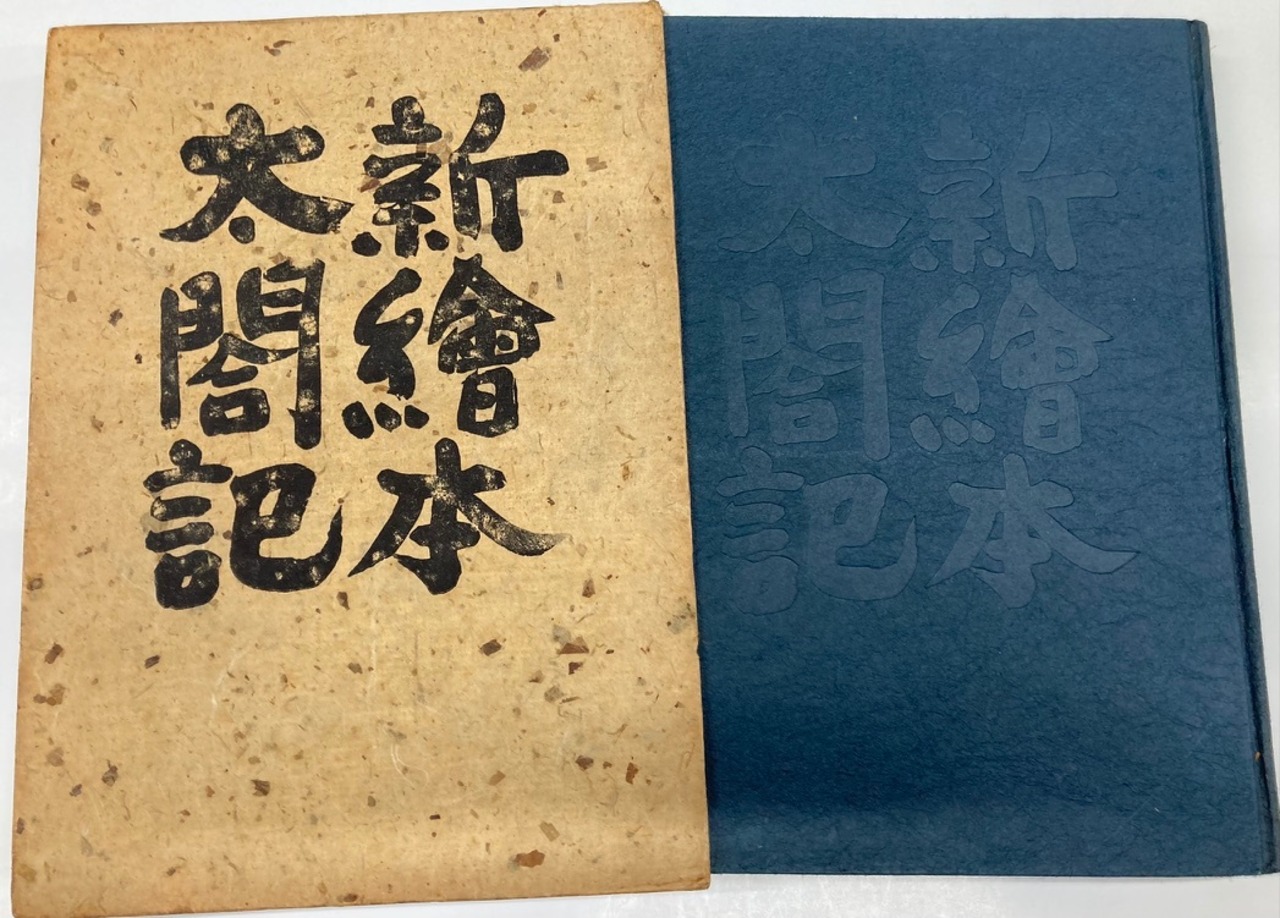 新繪本
太閤記
新繪本
太閤記